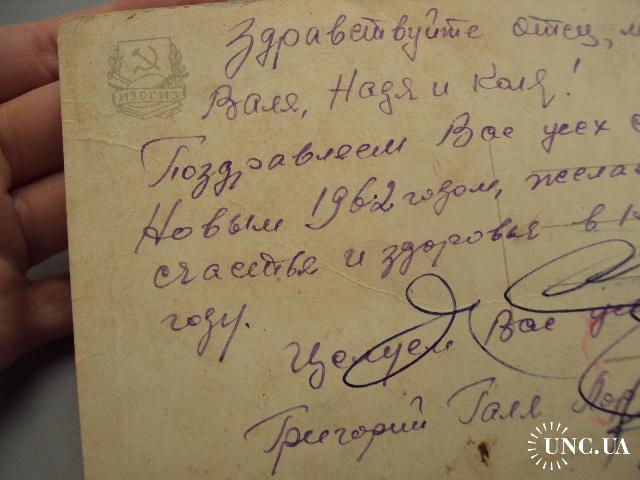 ИЗОГИЗ
Здравствуйте отец, м
Валя, Надя и Коля!
Поздравляем Вас всех с
Новым 1962 годом, желае
счастья и здоровья в
году.
Целуем Вас
Григорий Галя
UNC.UA